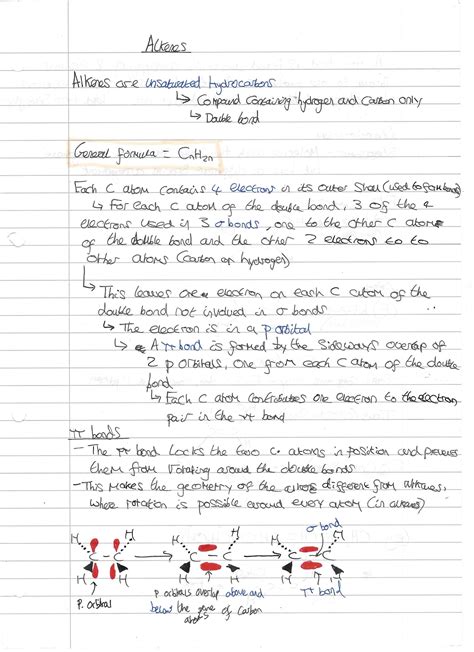 Alkenes
Alkenes are unsaturated hydrocarbons
↳ Compound containing hydrogen and carbon only
↳ Double bond
General formula = CnH2n
Each C atom contains 4 electrons in its outer shell (used to form bonds)
↳ For each C atom of the double bond, 3 of the 4
electrons used in 3 σ bonds, one to the other C atom
of the double bond and the other 2 electrons go to
other atoms (carbon or hydrogen)
↳ This leaves one electron on each C atom of the
double bond not involved in σ bonds
↳ The electron is in a p orbital
↳ A π bond is formed by the sideways overlap of
2 p orbitals, one from each C atom of the double
bond
↳ Each C atom contributes one electron to the electron
pair in the π bond
π bonds
- The π bond locks the two C atoms in position and prevents
them from rotating around the double bonds
- This makes the geometry of the different from alkanes,
where rotation is possible around every atom (in alkanes)
σ bond
H H H H H H
C - C → C - C → C - C
H H H H H H
p. orbital
p. orbitals overlap above and
below the plane of carbon
atoms
π bond